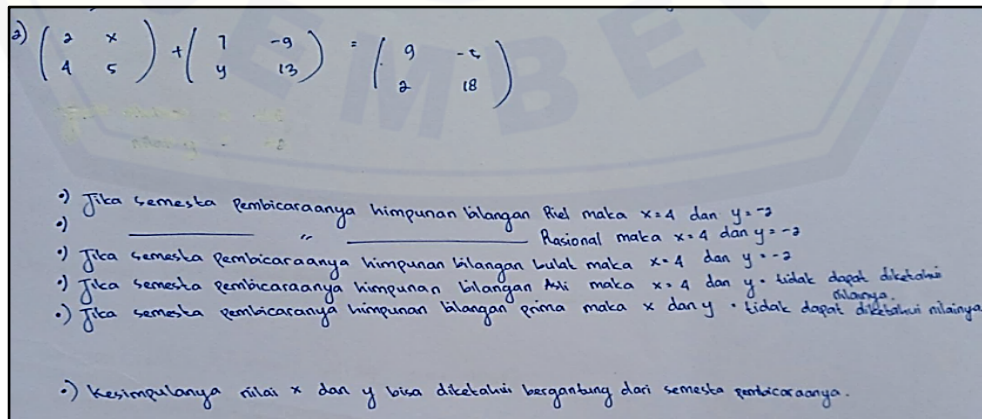 2) ( 2 x ) + ( 7 -9 ) = ( 9 -5 )
( 4 5 ) ( y 13 ) ( 2 18 )
•) Jika semesta pembicaraanya himpunan bilangan Riel maka x=4 dan y=-2
•) ———— " ———— Rasional maka x=4 dan y=-2
•) Jika semesta pembicaraanya himpunan bilangan bulat maka x=4 dan y=-2
•) Jika semesta pembicaraanya himpunan bilangan Asli maka x=4 dan y= tidak dapat diketahui
nilainya.
•) Jika semesta pembicaranya himpunan bilangan prima maka x dan y = tidak dapat diketahui nilainya.
•) Kesimpulanya nilai x dan y bisa diketahui bergantung dari semesta pembicaraanya.